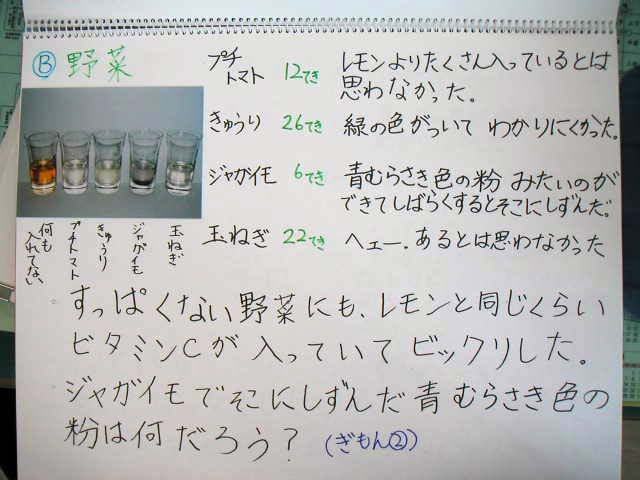 Ⓑ 野菜
プチ
トマト 12てき レモンよりたくさん入っているとは
思わなかった。
きゅうり 26てき 緑の色がついて わかりにくかった。
ジャガイモ 6てき 青むらさき色の粉 みたいのが
できてしばらくするとそこにしずんだ。
玉ねぎ 22てき ヘェー. あるとは思わなかった
何も
入れてない
プチトマト
きゅうり
ジャガイモ
玉ねぎ
すっぱくない野菜にも、レモンと同じくらい
ビタミンCが入っていてビックリした。
ジャガイモでそこにしずんだ青むらさき色の
粉は何だろう？ (ぎもん②)